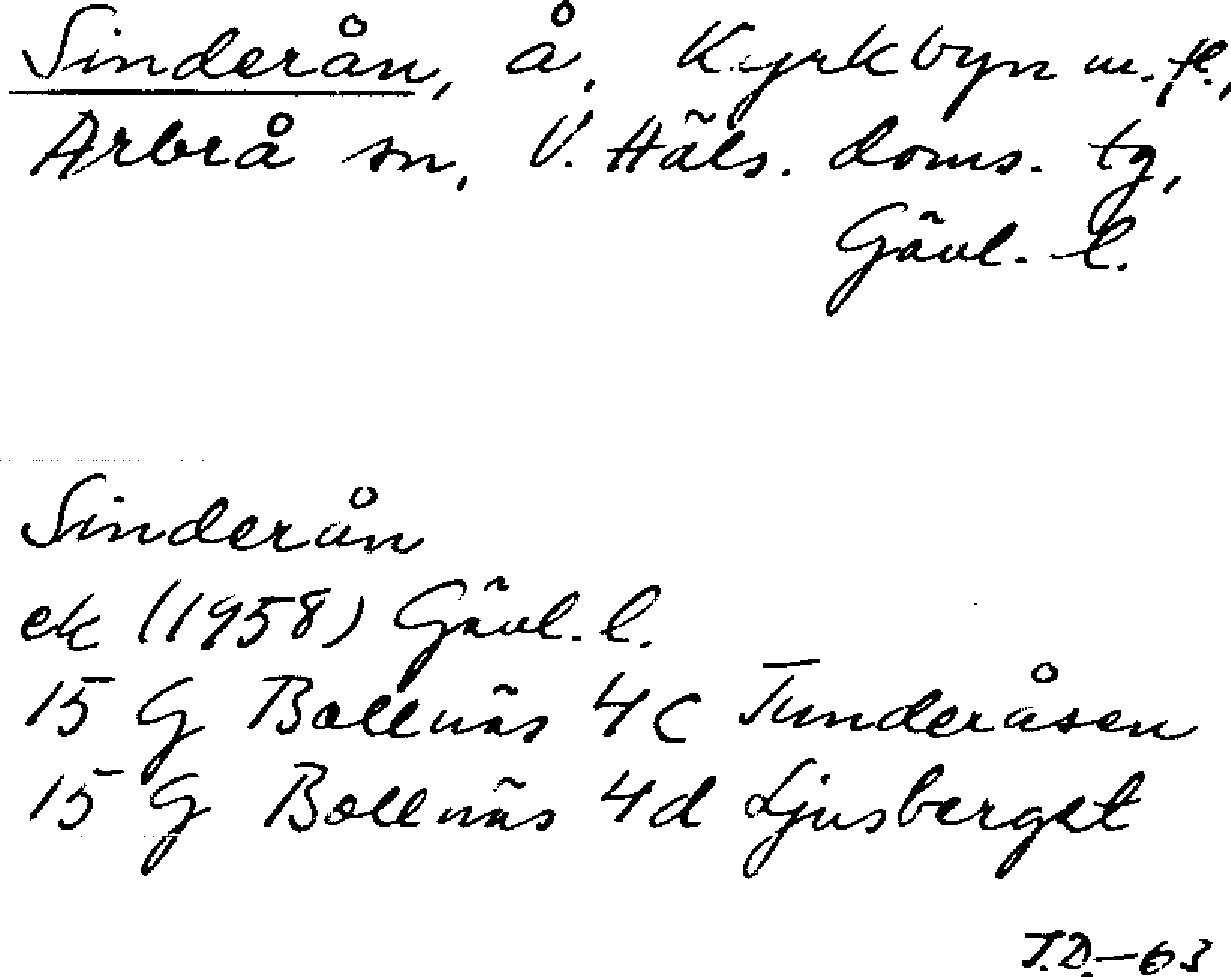 Sinderån, å, Kyrkbyn m. fl.,
Arbrå sn, V. Häls. doms. tg,
Gävl. l.
Sinderån
ek (1958) Gävl. l.
15 G Bollnäs 4c Tunderåsen
15 G Bollnäs 4d Ljusberget
J.D.-63